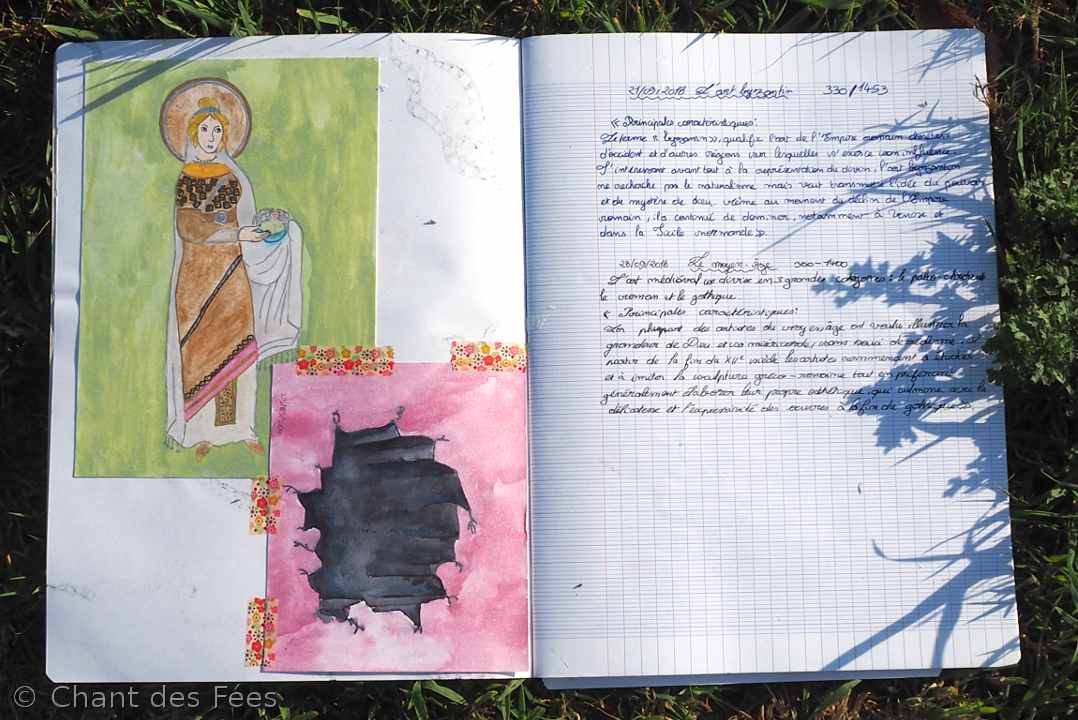 21/09/2018 L'art byzantin 330/1453
« Principales caractéristiques:
Le terme « byzantin », qualifie l'art de l'Empire romain
d'occident et d'autres régions sur lesquelles il exerce son influence.
S'intéressant avant tout à la représentation du divin, l'art byzantin
ne recherche pas le naturalisme mais veut transmettre l'idée du pouvoir
et de mystère de Dieu, même au moment du déclin de l'Empire
romain, il a continué de dominer, notamment à Venise et
dans la Sicile normande ».
28/09/2018 Le moyen-âge 500-1400
L'art médiéval se divise en 3 grandes catégories:
le roman et le gothique
« Principales caractéristiques:
La plupart des artistes du moyen âge ont voulu illustrer la
grandeur de Dieu et sa miséricorde, sans souci de réalisme.
partir de la fin du XIIe siècle les artistes commencent à étudier
et à imiter la sculpture gréco-romaine tout en préférant
généralement élaborer leur propre esthétique, qui culmine avec la
délicatesse et l'expressivité des oeuvres à la fin du gothique ».
© Chant des Fées